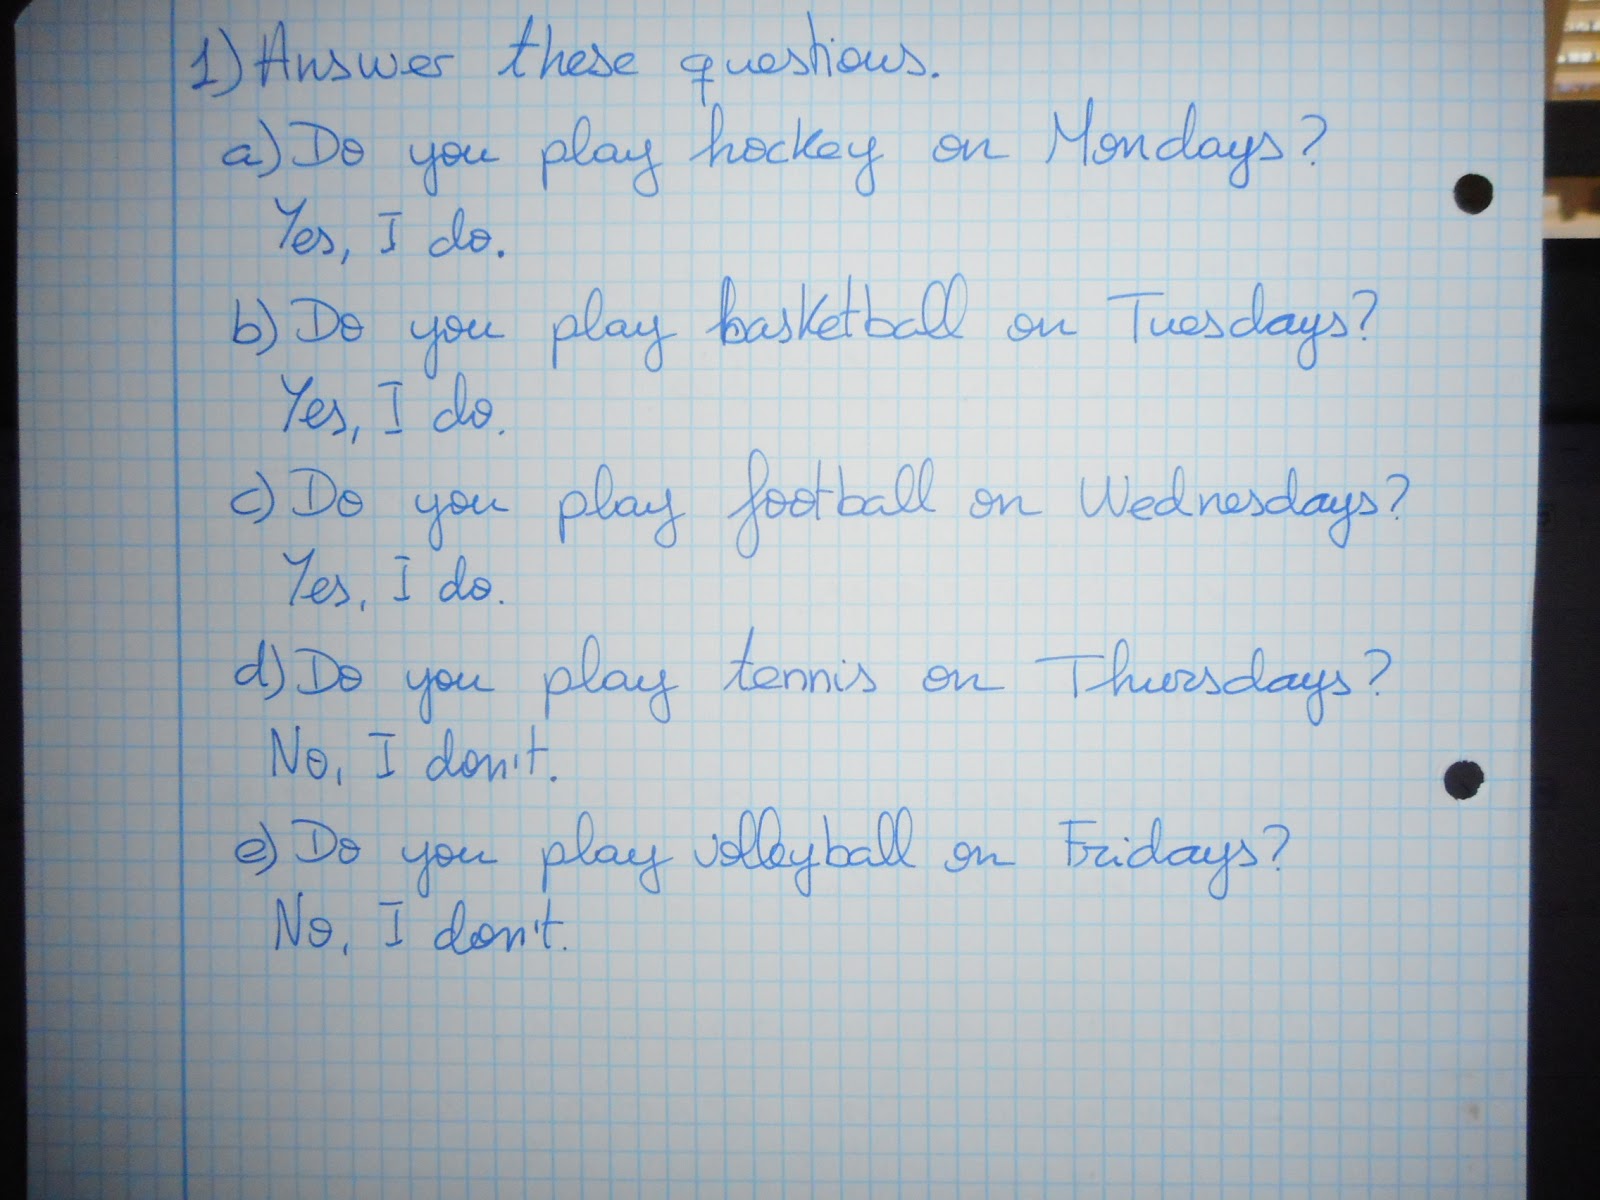 1) Answer these questions.
a) Do you play hockey on Mondays?
Yes, I do.
b) Do you play basketball on Tuesdays?
Yes, I do.
c) Do you play football on Wednesdays?
Yes, I do.
d) Do you play tennis on Thursdays?
No, I don't.
e) Do you play volleyball on Fridays?
No, I don't.